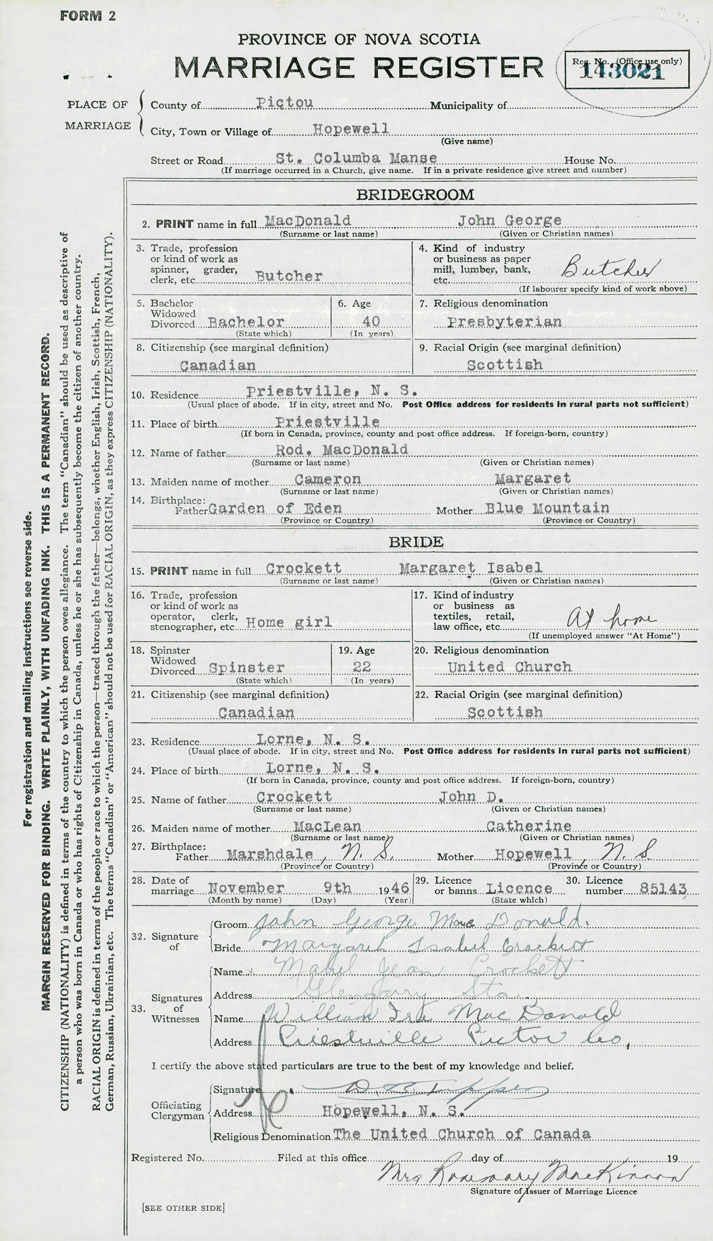 FORM 2
PROVINCE OF NOVA SCOTIA
MARRIAGE REGISTER
Reg. No. (Office use only)
143021
PLACE OF MARRIAGE
County of Pictou Municipality of
City, Town or Village of Hopewell
(Give name)
Street or Road St. Columba Manse House No.
(If marriage occurred in a Church, give name. If in a private residence give street and number)
BRIDEGROOM
2. PRINT name in full MacDonald John George
(Surname or last name) (Given or Christian names)
3. Trade, profession or kind of work as spinner, grader, clerk, etc. Butcher
4. Kind of industry or business as paper mill, lumber, bank, etc. Butcher
(If labourer specify kind of work above)
5. Bachelor Widowed Divorced Bachelor
(State which)
6. Age 40
(In years)
7. Religious denomination
Presbyterian
8. Citizenship (see marginal definition)
Canadian
9. Racial Origin (see marginal definition)
Scottish
10. Residence Priestville, N. S.
(Usual place of abode. If in city, street and No. Post Office address for residents in rural parts not sufficient)
11. Place of birth Priestville
(If born in Canada, province, county and post office address. If foreign-born, country)
12. Name of father Rod. MacDonald
(Surname or last name) (Given or Christian names)
13. Maiden name of mother Cameron Margaret
(Surname or last name) (Given or Christian names)
14. Birthplace:
Father Garden of Eden Mother Blue Mountain
(Province or Country) (Province or Country)
BRIDE
15. PRINT name in full Crockett Margaret Isabel
(Surname or last name) (Given or Christian names)
16. Trade, profession or kind of work as operator, clerk, stenographer, etc Home girl
17. Kind of industry or business as textiles, retail, law office, etc. At home
(If unemployed answer "At Home")
18. Spinster Widowed Divorced Spinster
(State which)
19. Age 22
(In years)
20. Religious denomination
United Church
21. Citizenship (see marginal definition)
Canadian
22. Racial Origin (see marginal definition)
Scottish
23. Residence Lorne, N. S.
(Usual place of abode. If in city, street and No. Post Office address for residents in rural parts not sufficient)
24. Place of birth Lorne, N. S.
(If born in Canada, province, county and post office address. If foreign-born, country)
25. Name of father Crockett John D.
(Surname or last name) (Given or Christian names)
26. Maiden name of mother MacLean Catherine
(Surname or last name) (Given or Christian names)
27. Birthplace:
Father Marshdale, N. S. Mother Hopewell N. S
(Province or Country) (Province or Country)
28. Date of marriage November 9th 1946
(Month by name) (Day) (Year)
29. Licence or banns Licence
(State which)
30. Licence number 85143
32. Signature of
Groom John George MacDonald.
Bride Margaret Isabel Crockett
33. Signatures of Witnesses
Name Mabel Jean Crockett
Address Sta.
Name William Ira MacDonald
Address Priestville Pictou Co,
I certify the above stated particulars are true to the best of my knowledge and belief.
Officiating Clergyman
Signature
Address Hopewell, N. S.
Religious Denomination The United Church of Canada
Registered No. Filed at this office day of 19
Mrs Rosemary MacKinnon
Signature of Issuer of Marriage Licence
[SEE OTHER SIDE]
For registration and mailing instructions see reverse side.
MARGIN RESERVED FOR BINDING. WRITE PLAINLY, WITH UNFADING INK. THIS IS A PERMANENT RECORD.
CITIZENSHIP (NATIONALITY) is defined in terms of the country to which the person owes allegiance. The term "Canadian" should be used as descriptive of
a person who was born in Canada or who has rights of Citizenship in Canada, unless he or she has subsequently become the citizen of another country.
RACIAL ORIGIN is defined in terms of the people or race to which the person—traced through the father—belongs, whether English, Irish, Scottish, French,
German, Russian, Ukrainian, etc. The terms "Canadian" or "American" should not be used for RACIAL ORIGIN, as they express CITIZENSHIP (NATIONALITY).